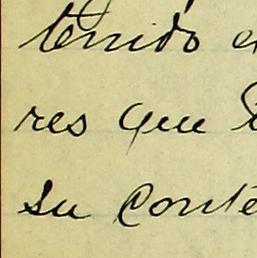 tenido e
res que
su conte